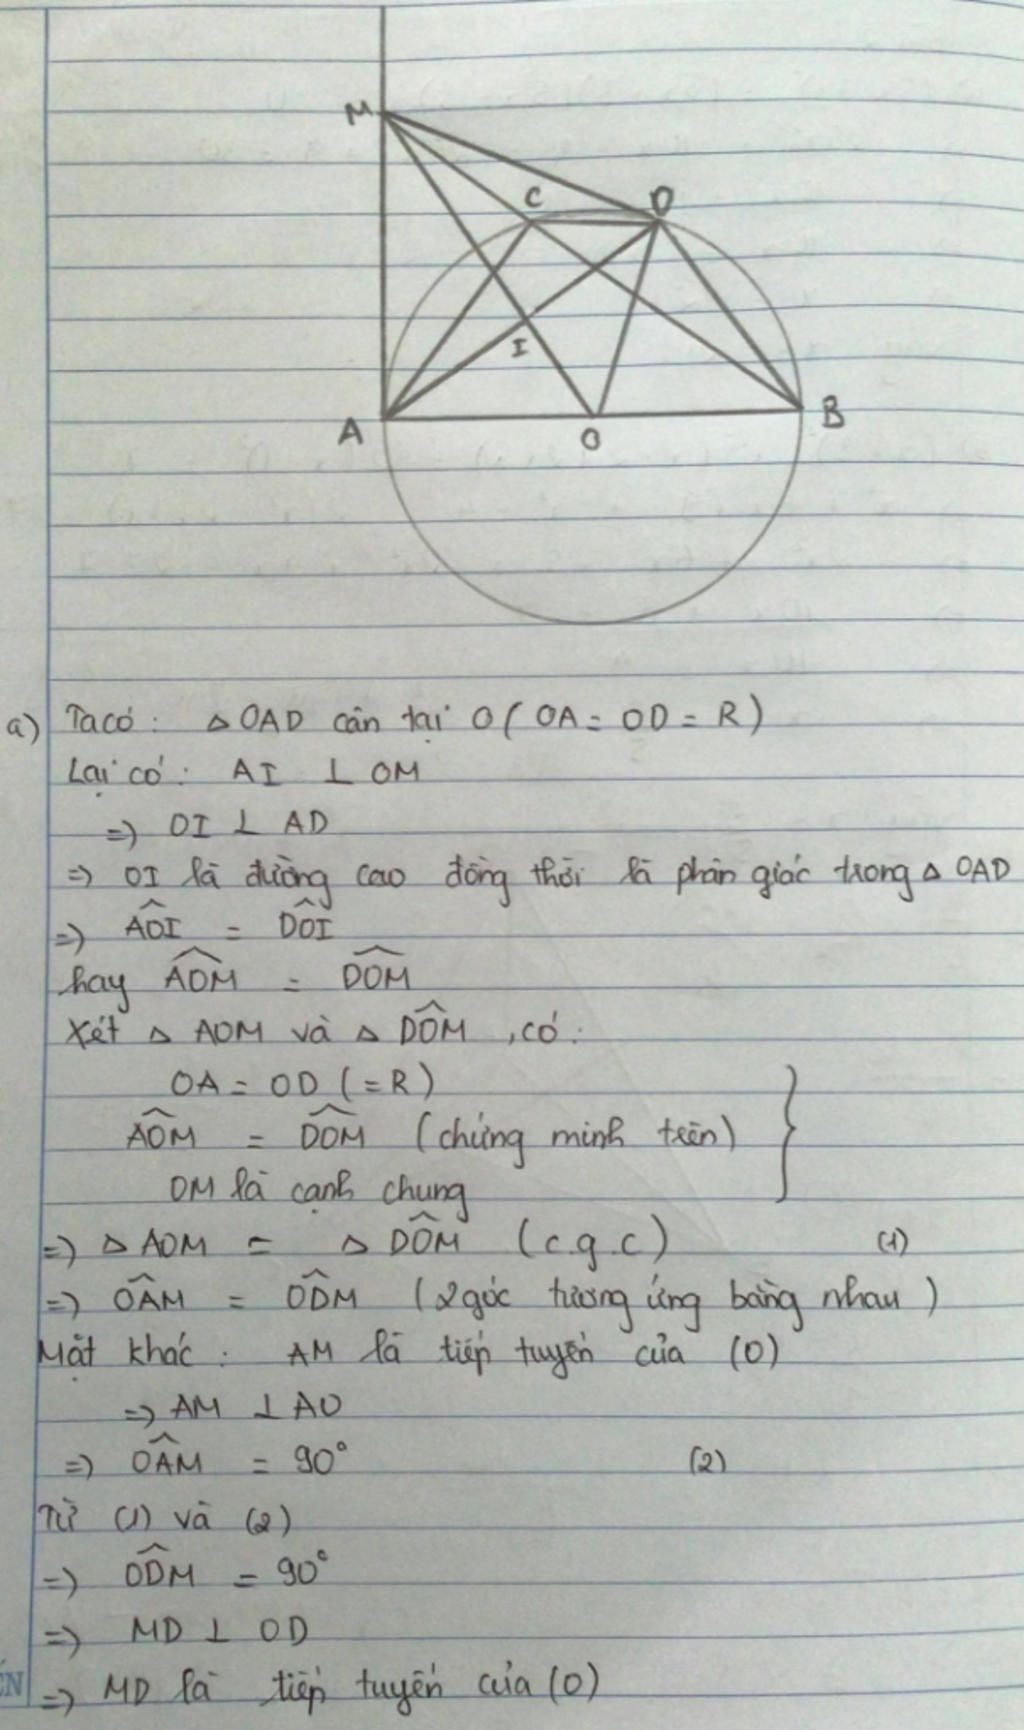 M
C
D
I
A
O
B
a) Ta có : △ OAD cân tại O ( OA = OD = R )
Lại có : AI ⊥ OM
=> OI ⊥ AD
=> OI là đường cao đồng thời là phân giác trong △ OAD
=> AÔI = DÔI
hay AÔM = DÔM
Xét △ AOM và △ DÔM , có :
OA = OD ( = R )
AÔM = DÔM ( chứng minh trên )
OM là cạnh chung
=> △ AOM = △ DÔM ( c . g . c ) (1)
=> OÂM = OD̂M ( 2 góc tương ứng bằng nhau )
Mặt khác : AM là tiếp tuyến của (O)
=> AM ⊥ AO
=> OÂM = 90° (2)
Từ (1) và (2)
=> OD̂M = 90°
=> MD ⊥ OD
=> MD là tiếp tuyến của (O)